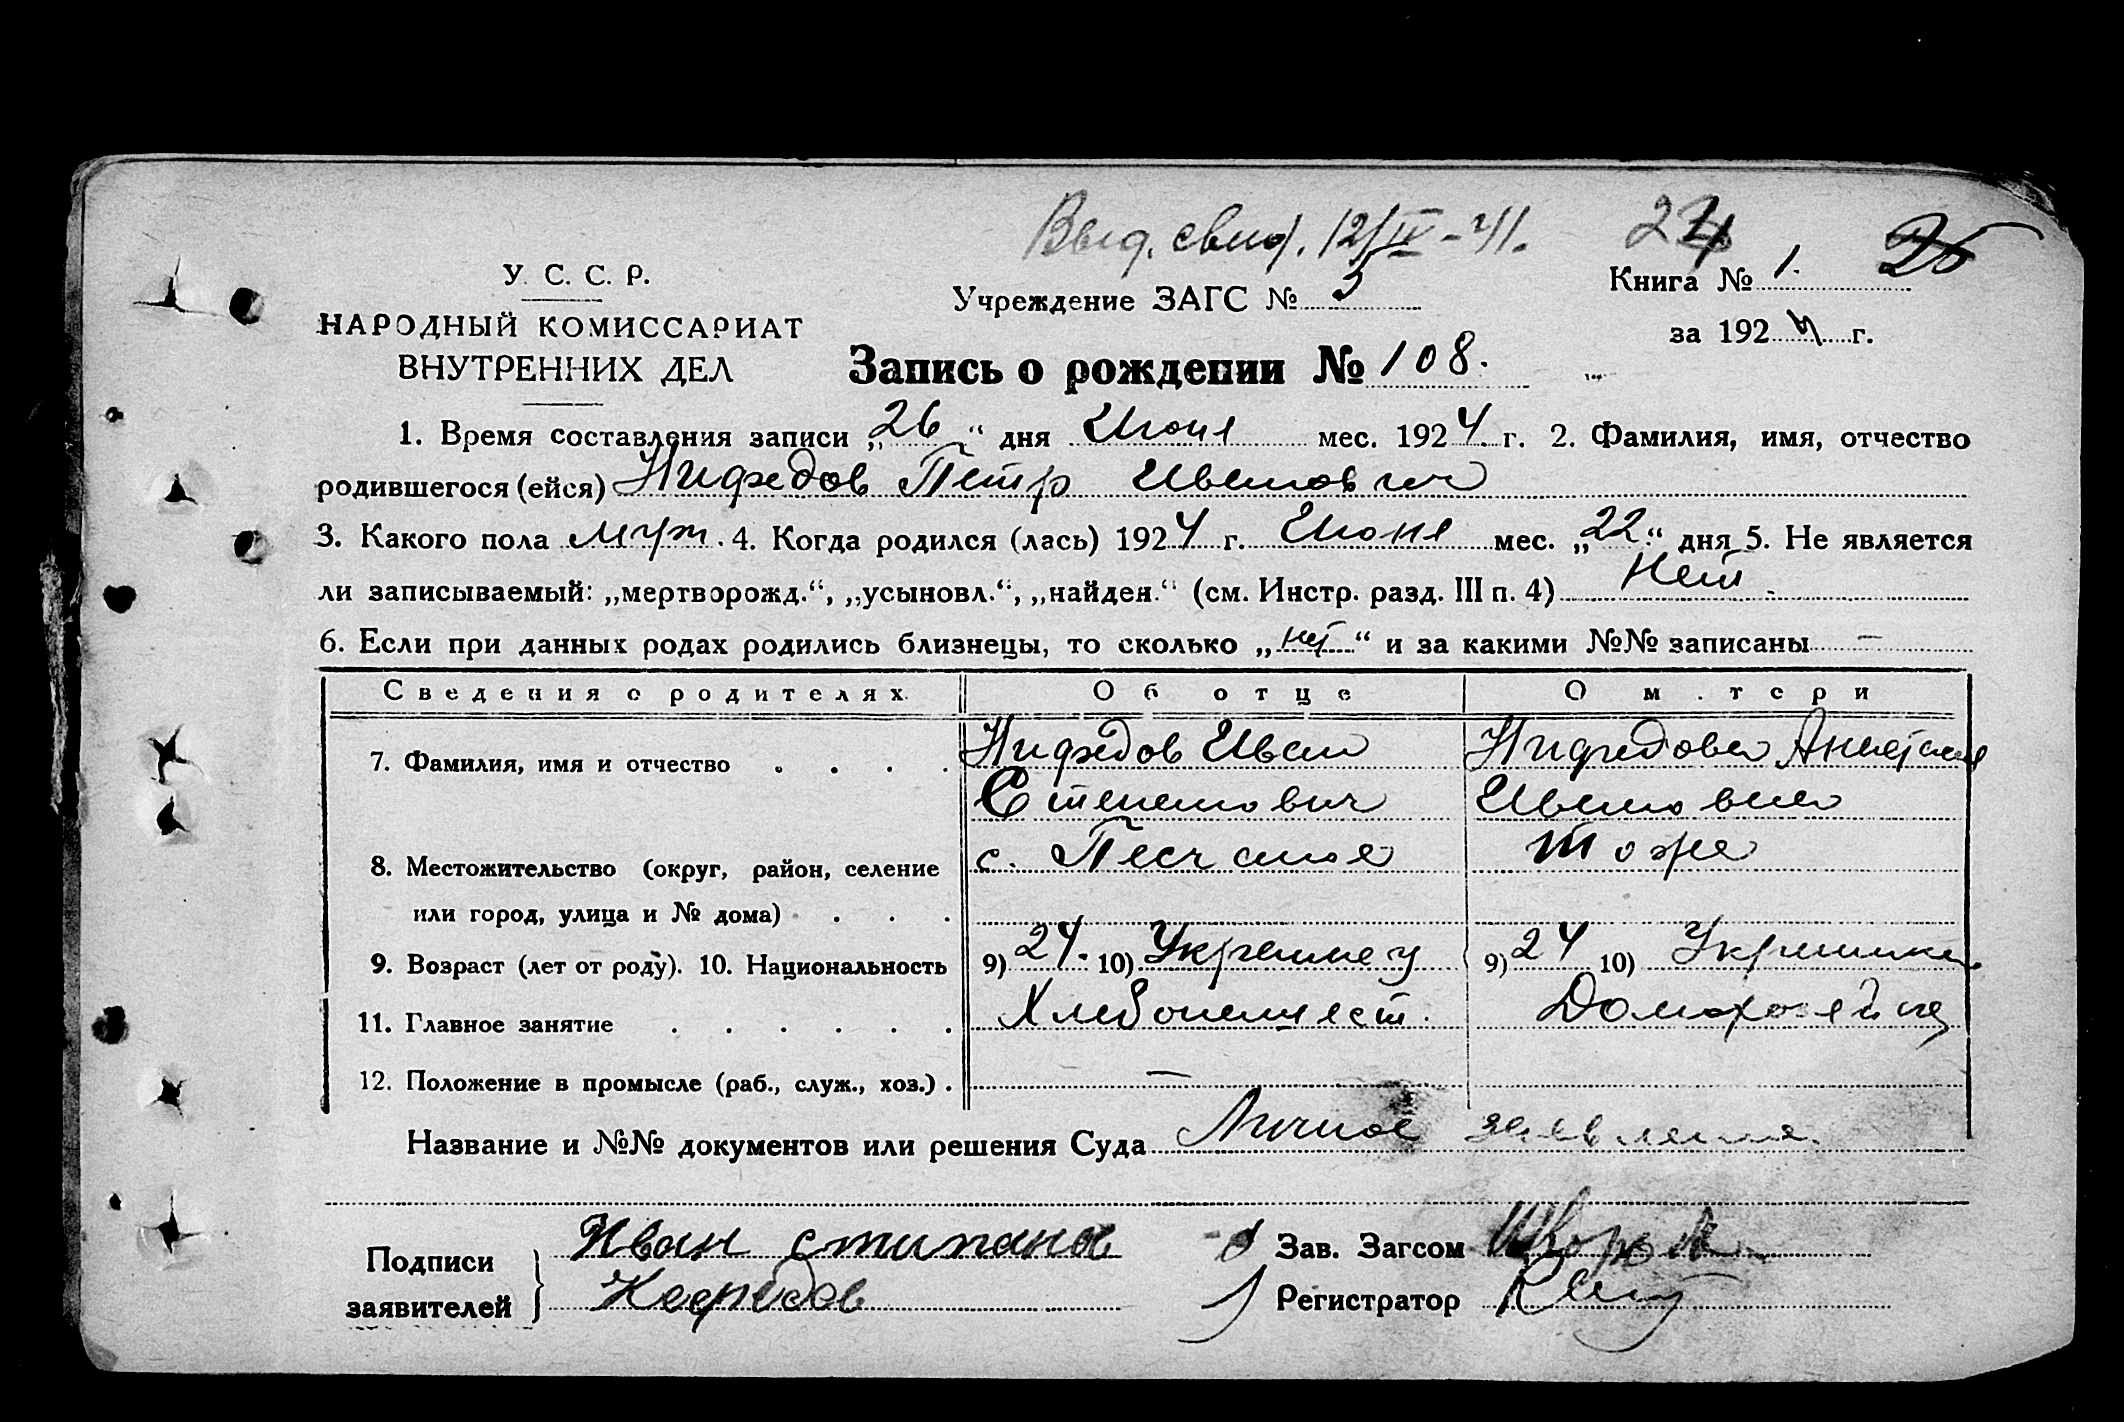 Выд. свид. 12/IV-41.
24
26
У. С. С. Р.
НАРОДНЫЙ КОМИССАРИАТ
ВНУТРЕННИХ ДЕЛ
Учреждение ЗАГС № 3
Книга № 1.
за 1924 г.
Запись о рождении № 108.
1. Время составления записи „26“ дня Июня мес. 1924 г. 2. Фамилия, имя, отчество
родившегося (ейся) Нифедов Петр Иванович
3. Какого пола муж. 4. Когда родился (лась) 1924 г. Июня мес. „22“ дня 5. Не является
ли записываемый: „мертворожд.“, „усыновл.“, „найден.“ (см. Инстр. разд. III п. 4) Нет
6. Если при данных родах родились близнецы, то сколько „нет“ и за какими №№ записаны —
Сведения о родителях Об отце О м.тери
7. Фамилия, имя и отчество Нифедов Иван Нифедова Анастасия
Степанович Ивановна
8. Местожительство (округ, район, селение с. Песчаное тоже
или город, улица и № дома)
9. Возраст (лет от роду). 10. Национальность 9) 24. 10) Украинец 9) 24 10) Украинка
11. Главное занятие Хлебопашест. Домохозяйка
12. Положение в промысле (раб., служ., хоз.) —
Название и №№ документов или решения Суда Личное заявление.
Подписи заявителей Иван
Зав. Загсом
Регистратор